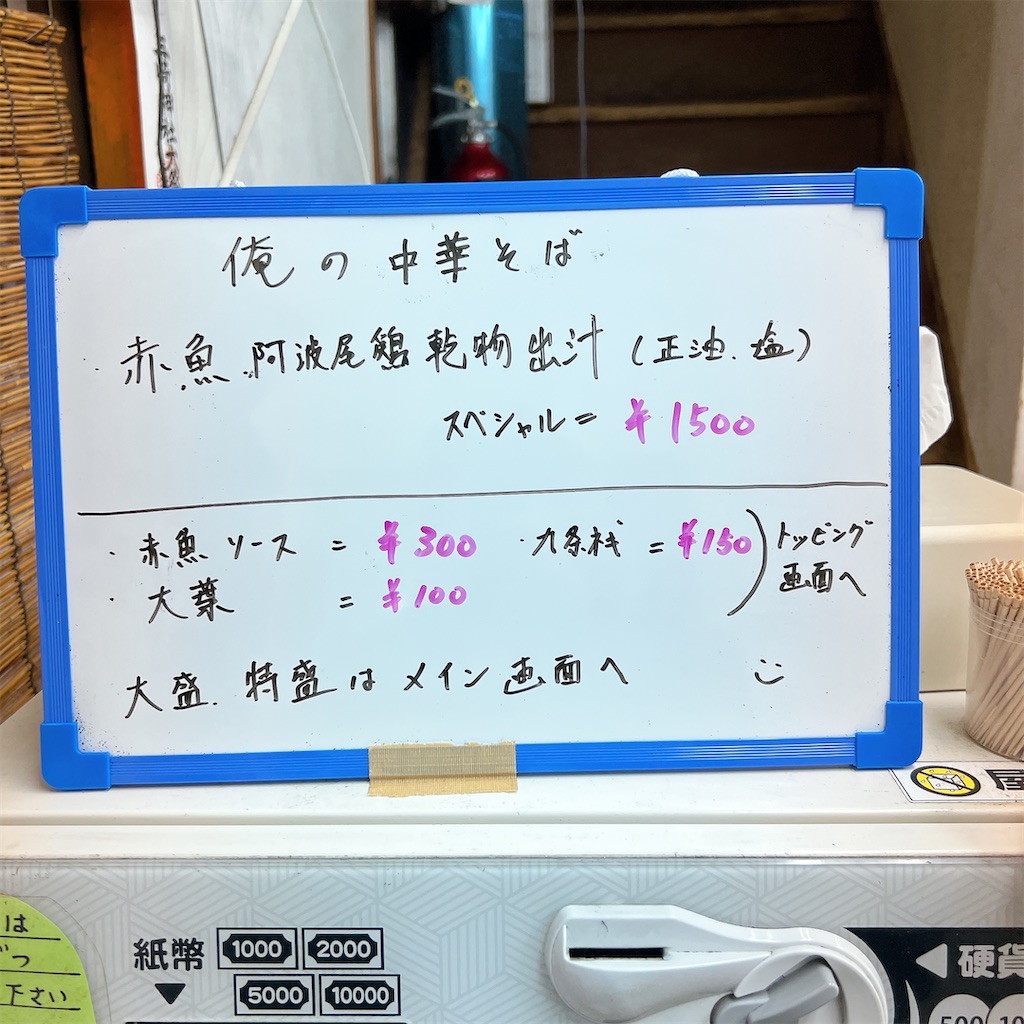 俺の中華そば
・赤魚.阿波尾鶏乾物出汁(正油.塩)
スペシャル= ¥1500
・赤魚ソース = ¥300 ・九条ネギ = ¥150
・大葉 = ¥100
トッピング
画面へ
大盛.特盛はメイン画面へ
は
下さい
紙幣
1000 2000
5000 10000
硬貨
500